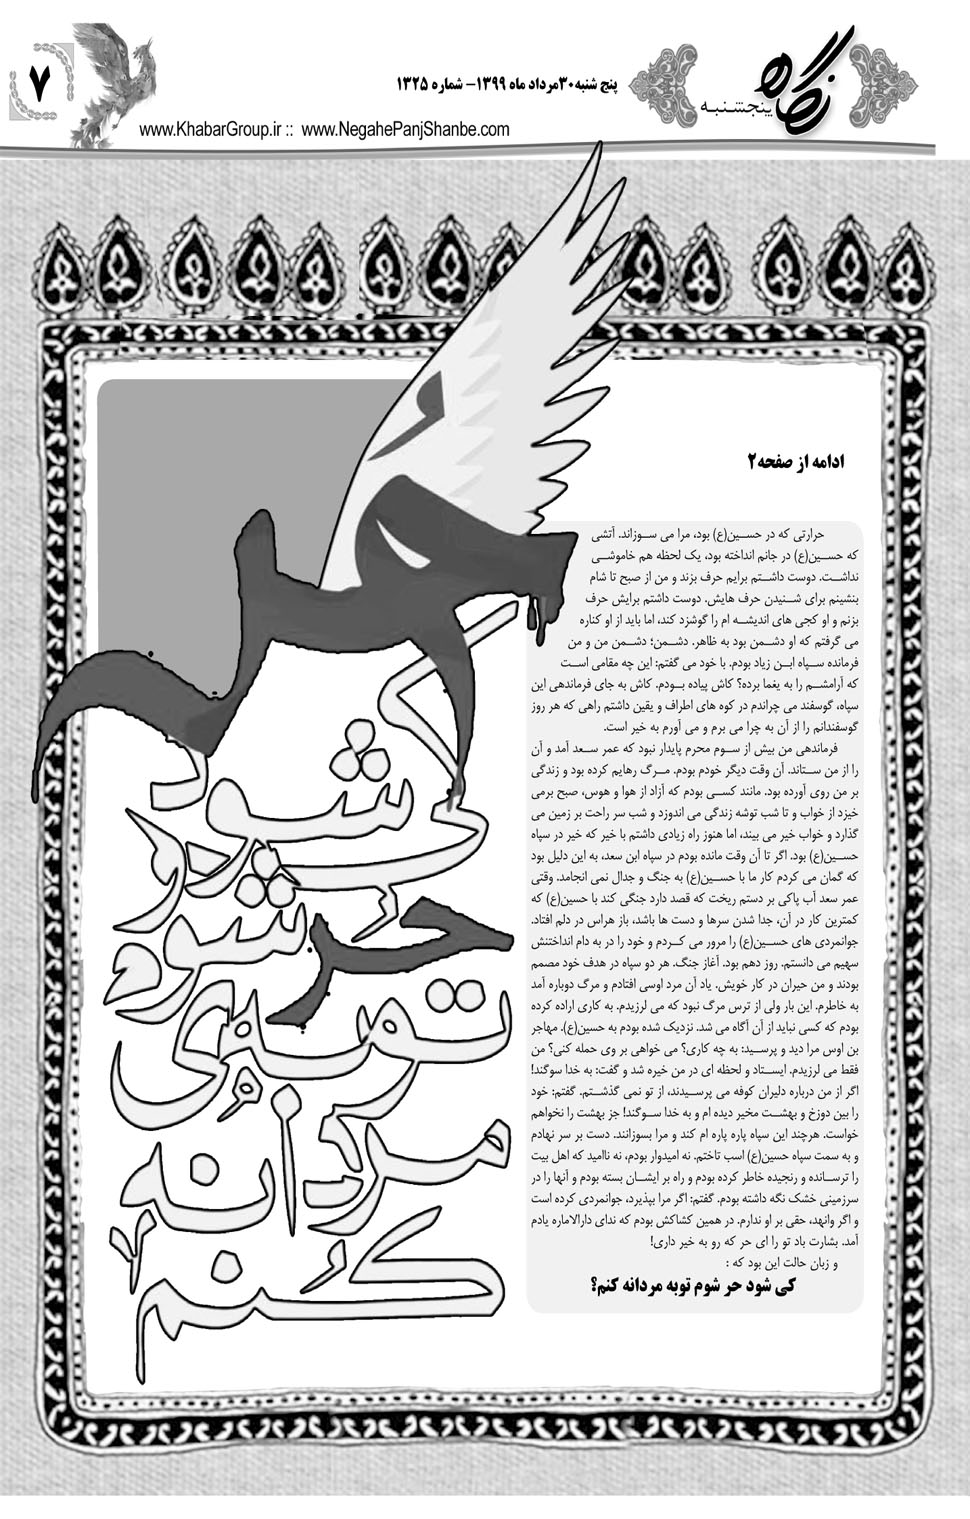 نگاه
پنجشنبه
پنج شنبه۳۰مرداد ماه ۱۳۹۹- شماره ۱۳۲۵
۷
www.KhabarGroup.ir :: www.NegahePanjShanbe.com
ادامه از صفحه۲
حرارتی که در حسین(ع) بود، مرا می سوزاند. آتشی
که حسین(ع) در جانم انداخته بود، یک لحظه هم خاموشی
نداشت. دوست داشتم برایم حرف بزند و من از صبح تا شام
بنشینم برای شنیدن حرف هایش. دوست داشتم برایش حرف
بزنم و او کجی های اندیشه ام را گوشزد کند، اما باید از او کناره
می گرفتم که او دشمن بود به ظاهر. دشمن؛ دشمن من و من
فرمانده سپاه ابن زیاد بودم. با خود می گفتم: این چه مقامی است
که آرامشم را به یغما برده؟ کاش پیاده بودم. کاش به جای فرماندهی این
سپاه، گوسفند می چراندم در کوه های اطراف و یقین داشتم راهی که هر روز
گوسفندانم را از آن به چرا می برم و می آورم به خیر است.
فرماندهی من بیش از سوم محرم پایدار نبود که عمر سعد آمد و آن
را از من ستاند. آن وقت دیگر خودم بودم. مرگ رهایم کرده بود و زندگی
بر من روی آورده بود. مانند کسی بودم که آزاد از هوا و هوس، صبح برمی
خیزد از خواب و تا شب توشه زندگی می اندوزد و شب سر راحت بر زمین می
گذارد و خواب خیر می بیند، اما هنوز راه زیادی داشتم با خیر که خیر در سپاه
حسین(ع) بود. اگر تا آن وقت مانده بودم در سپاه ابن سعد، به این دلیل بود
که گمان می کردم کار ما با حسین(ع) به جنگ و جدال نمی انجامد. وقتی
عمر سعد آب پاکی بر دستم ریخت که قصد دارد جنگی کند با حسین(ع) که
کمترین کار در آن، جدا شدن سرها و دست ها باشد، باز هراس در دلم افتاد.
جوانمردی های حسین(ع) را مرور می کردم و خود را در به دام انداختنش
سهیم می دانستم. روز دهم بود. آغاز جنگ. هر دو سپاه در هدف خود مصمم
بودند و من حیران در کار خویش. یاد آن مرد اوسی افتادم و مرگ دوباره آمد
به خاطرم. این بار ولی از ترس مرگ نبود که می لرزیدم. به کاری اراده کرده
بودم که کسی نباید از آن آگاه می شد. نزدیک شده بودم به حسین(ع). مهاجر
بن اوس مرا دید و پرسید: به چه کاری؟ می خواهی بر وی حمله کنی؟ من
فقط می لرزیدم. ایستاد و لحظه ای در من خیره شد و گفت: به خدا سوگند!
اگر از من درباره دلیران کوفه می پرسیدند، از تو نمی گذشتم. گفتم: خود
را بین دوزخ و بهشت مخیر دیده ام و به خدا سوگند! جز بهشت را نخواهم
خواست. هرچند این سپاه پاره پاره ام کند و مرا بسوزانند. دست بر سر نهادم
و به سمت سپاه حسین(ع) اسب تاختم. نه امیدوار بودم، نه ناامید که اهل بیت
را ترسانده و رنجیده خاطر کرده بودم و راه بر ایشان بسته بودم و آنها را در
سرزمینی خشک نگه داشته بودم. گفتم: اگر مرا بپذیرد، جوانمردی کرده است
و اگر وانهد، حقی بر او ندارم. در همین کشاکش بودم که ندای دارالاماره یادم
آمد. بشارت باد تو را ای حر که رو به خیر داری!
و زبان حالت این بود که :
کی شود حر شوم توبه مردانه کنم؟
کی شود
حر شوم و
توبه ی
مردانه
کنم